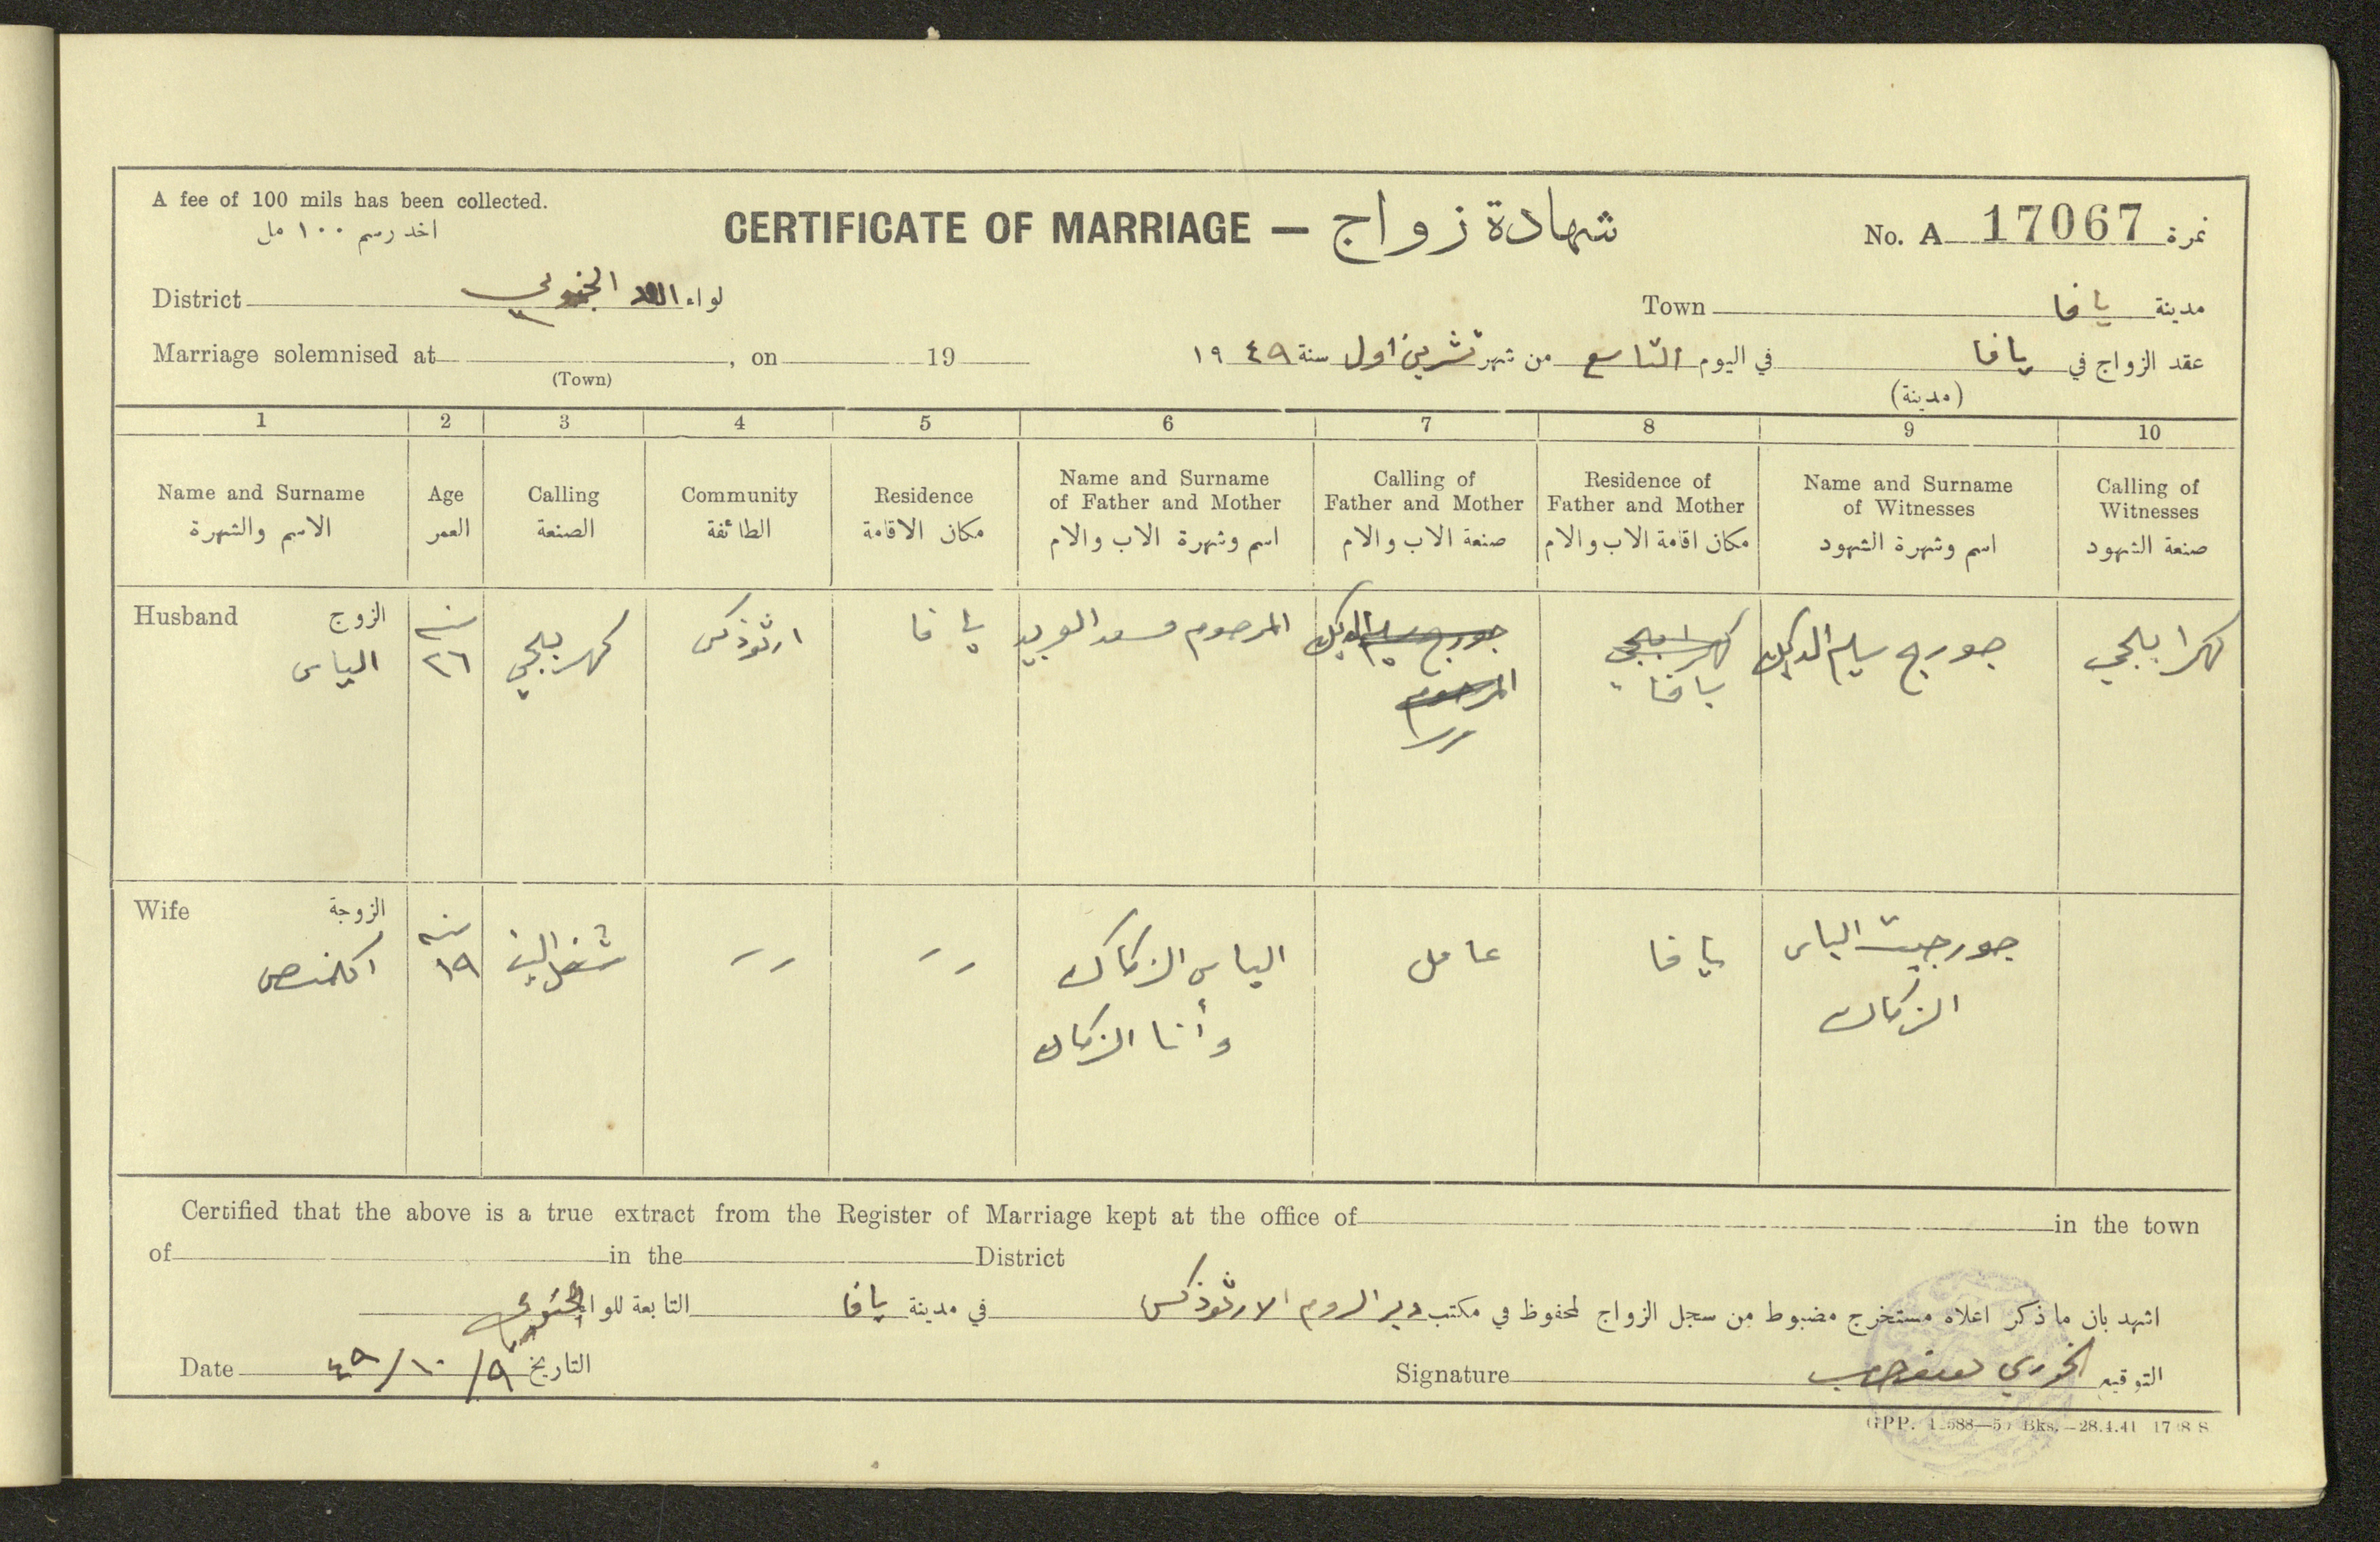 A fee of 100 mils has been collected.
اخذ رسم ١٠٠ مل
CERTIFICATE OF MARRIAGE — شهادة زواج
No. A 17067 نمرة
District الجنوبي لواء
Town يافا مدينة
Marriage solemnised at , on 19
(Town)
عقد الزواج في يافا في اليوم التاسع من شهر تشرين اول سنة ١٩٤٩
(مدينة)
1 2 3 4 5 6 7 8 9 10
Name and Surname
الاسم والشهرة
Age
العمر
Calling
الصنعة
Community
الطائفة
Residence
مكان الاقامة
Name and Surname
of Father and Mother
اسم وشهرة الاب والام
Calling of
Father and Mother
صنعة الاب والام
Residence of
Father and Mother
مكان اقامة الاب والام
Name and Surname
of Witnesses
اسم وشهرة الشهود
Calling of
Witnesses
صنعة الشهود
Husband الزوج
الياس
سنه
٢٦
كهربجي
ارثوذكس
يافا
المرحوم
المرحوم
يافا
جورج سليم
Wife الزوجة
سنه
١٩
شغل البيت
〃
〃
الياس الزكاك
وأنا الزكاك
عامل
يافا
جورجيت الياس
الزكاك
Certified that the above is a true extract from the Register of Marriage kept at the office of in the town
of in the District
اشهد بان ما ذكر اعلاه مستخرج مضبوط من سجل الزواج المحفوظ في مكتب دير الروم الارثوذكس في مدينة يافا التابعة للواء الجنوبي
Date ٤٩/١٠/٩ التاريخ
Signature الخوري التوقيع